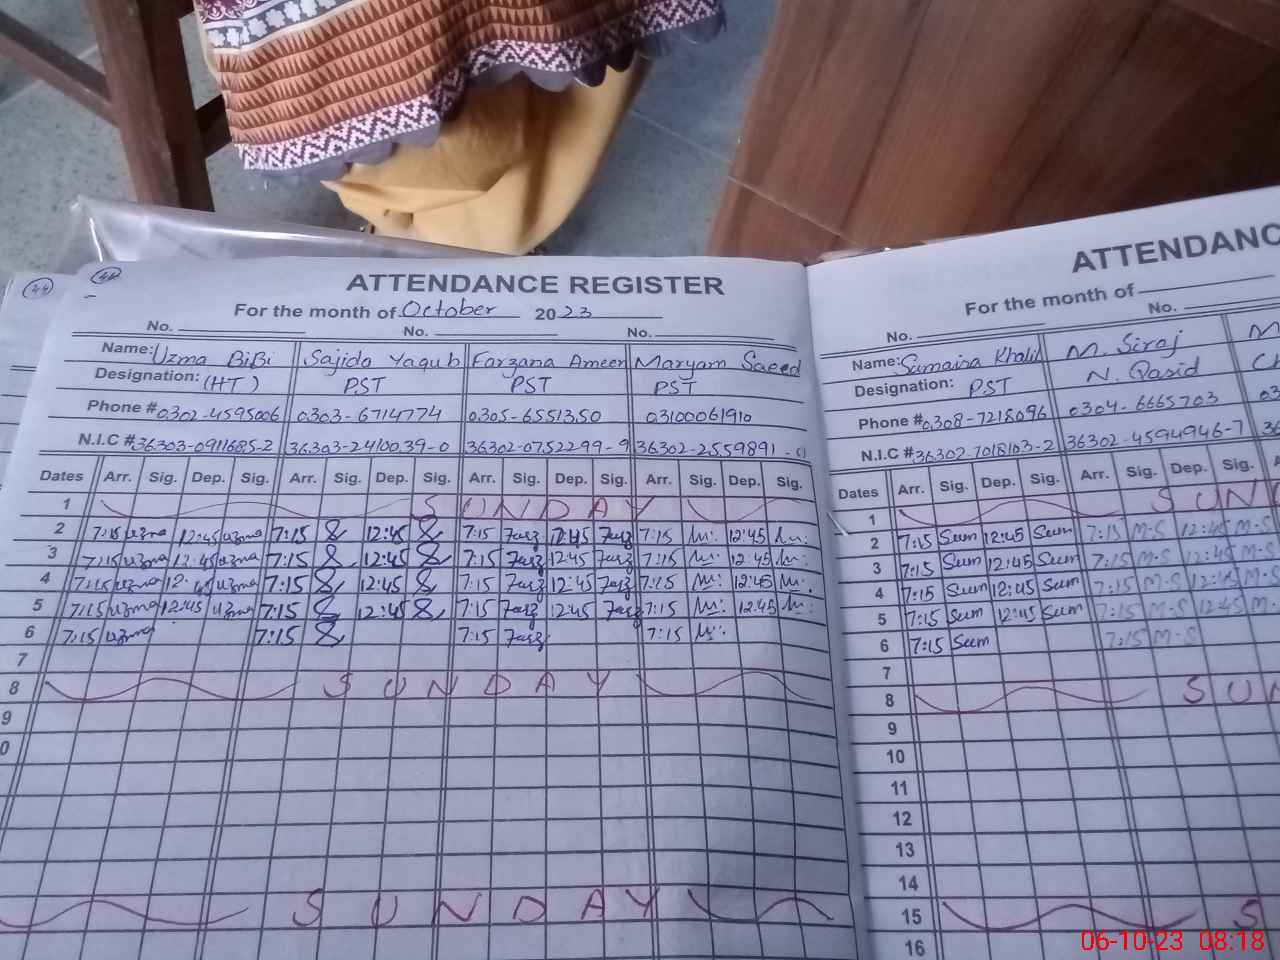 44
44
ATTENDANCE REGISTER
For the month of October 2023
No. No. No.
Name: Uzma BiBi Sajida Yaqub Farzana Ameer Maryam Saeed
Designation: (HT) PST PST PST
Phone # 0302-4595006 0303-6714774 0305-6551350 03100061910
N.I.C # 36303-0911685-2 36303-2410039-0 36302-0752299-9 36302-2559891-
Dates Arr. Sig. Dep. Sig. Arr. Sig. Dep. Sig. Arr. Sig. Dep. Sig. Arr. Sig. Dep. Sig.
1 SUNDAY
2 7:15 uzma 12:45 uzma 7:15 12:45 7:15 Farz 12:45 Farz 7:15 12:45
3 7:15 uzma 12:45 uzma 7:15 12:45 7:15 Farz 12:45 Farz 7:15 12:45
4 7:15 uzma 12:45 uzma 7:15 12:45 7:15 Farz 12:45 Farz 7:15 12:45
5 7:15 uzma 12:45 uzma 7:15 12:45 7:15 Farz 12:45 Farz 7:15 12:45
6 7:15 uzma 7:15 7:15 Farz 7:15
7
8 SUNDAY
9
0
SUNDAY
ATTENDANC
For the month of
No. No.
Name: Sumaira Khalil M. Siraj M
Designation: PST N. Qasid C
Phone # 0308-7218096 0304-6665703 03
N.I.C # 36302-7018103-2 36302-4594946-7 36
Dates Arr. Sig. Dep. Sig. Arr. Sig. Dep. Sig.
1 SUN
2 7:15 Sum 12:45 Sum 7:15 M-S 12:45 M-S
3 7:15 Sum 12:45 Sum 7:15 M-S 12:45 M-S
4 7:15 Sum 12:45 Sum 7:15 M-S 12:45 M-S
5 7:15 Sum 12:45 Sum 7:15 M-S 12:45 M-
6 7:15 Sum 7:15 M-S
7
8 SUN
9
10
11
12
13
14
15 S
16
06-10-23 08:18